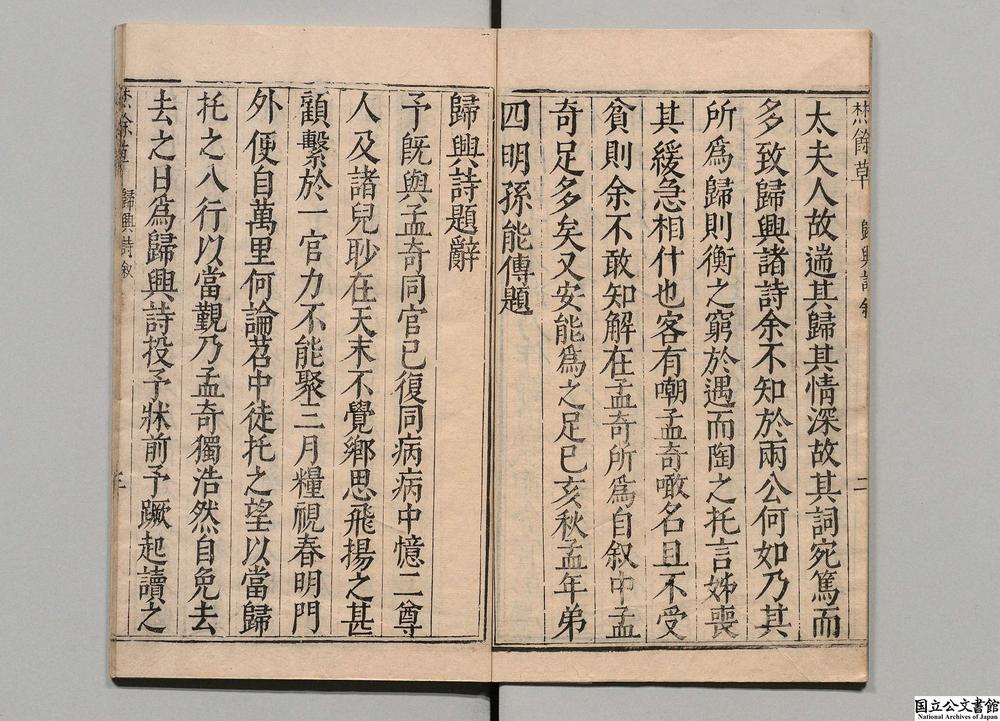 焚餘草 歸興詩叙 二
太夫人故遄其歸其情深故其詞宛篤而
多致歸興諸詩余不知於兩公何如乃其
所爲歸則衡之窮於遇而陶之托言姊喪
其緩急相什也客有嘲孟奇噉名且不受
貧則余不敢知解在孟奇所爲自叙中孟
奇足多矣又安能爲之足巳亥秋孟年弟
四明孫能傳題
歸興詩題辭
予旣與孟奇同官已復同病病中憶二尊
人及諸兒眇在天末不覺鄉思飛揚之甚
顧繫於一官力不能聚三月糧視春明門
外便自萬里何論苕中徒托之望以當歸
托之八行以當覯乃孟奇獨浩然自免去
去之日爲歸興詩投予牀前予蹶起讀之
焚餘草 歸興詩叙 三
国立公文書館
National Archives of Japan